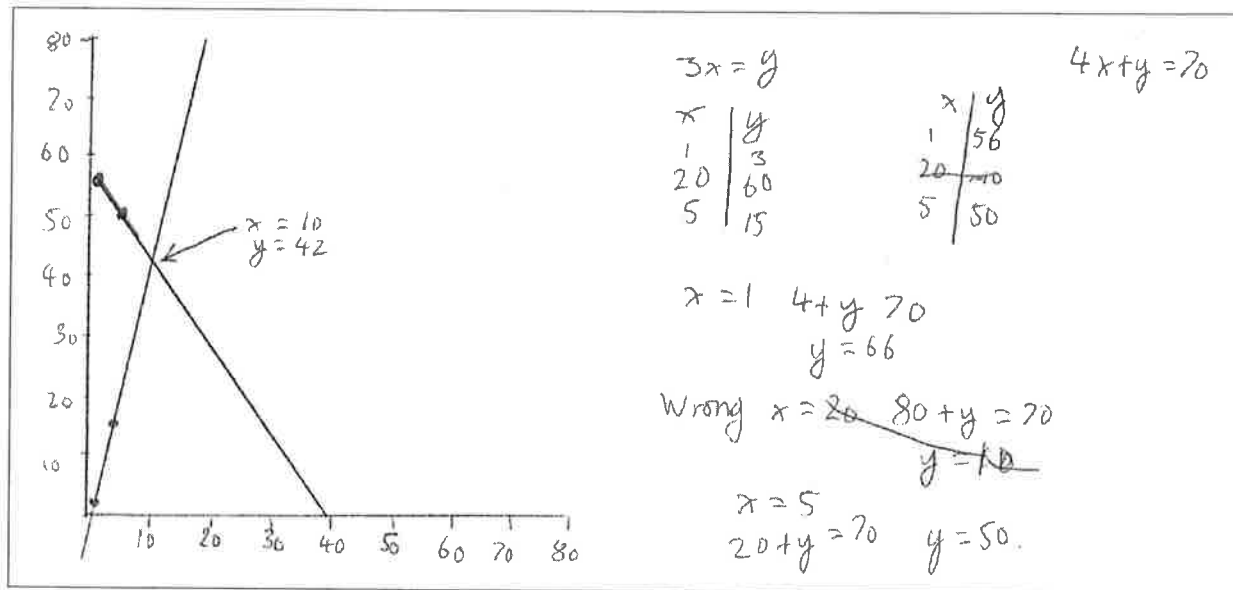 80
70
60
50
40
30
20
10
10 20 30 40 50 60 70 80
x = 10
y = 42
3x = y
x y
1 3
20 60
5 15
4x+y = 70
x y
1 56
20 -10
5 50
x = 1 4+y 70
y = 66
Wrong x = 20 80+y = 70
y = 10
x = 5
20+y = 70 y = 50.